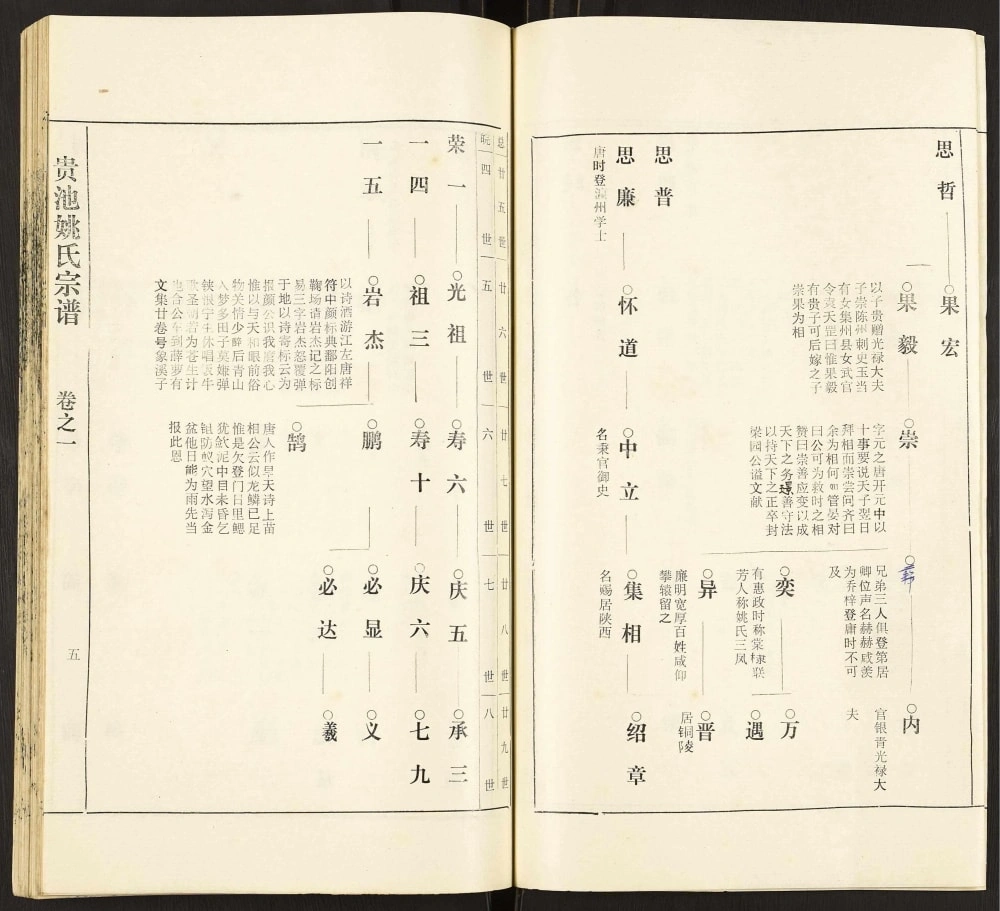 思哲
果宏
果毅
以子贵赠光禄大夫
子崇陈州刺史玉当
有女集州县女武官
令袁天罡曰惟果毅
有贵子可后嫁之子
崇果为相
崇
字元之唐开元中以
十事要说天子翌日
拜相而崇尝问齐曰
余为相何如管晏对
曰公可为救时之相
赞曰崇善应变以成
天下之务璟善守法
以持天下之正卒封
梁国公谥文献
彝
兄弟三人俱登第居
卿位声名赫赫咸羡
为乔梓登庸时不可
及
内
官银青光禄大
夫
奕
有惠政时称棠棣联
芳人称姚氏三凤
万
遇
异
廉明宽厚百姓咸仰
攀辕留之
晋
居铜陵
思普
思廉
唐时登瀛州学士
怀道
中立
名秉官御史
集相
名赐居陕西
绍章
总 廿五世 廿六世 廿七世 廿八世 廿九世
四世 五世 六世 七世 八世
荣一
光祖
寿六
庆五
承三
一四
祖三
寿十
庆六
七九
一五
岩杰
以诗酒游江左唐祥
符中颜标典鄱阳创
鞠场请岩杰记之标
易三字岩杰怒覆弹
于地以诗寄标云为
报颜公识我磨我心
惟以与天和眼前俗
物关情少醉后青山
入梦多田子莫嫌弹
铗恨宁生休唱饭牛
歌圣朝若为苍生计
也合公车到薜萝有
文集廿卷号象溪子
鹏
必显
义
必达
羲
鹄
唐人作旱天诗上苗
相公云似龙鳞已足
惟是欠登门日里鳃
犹歙泥中目未昏乞
锄防蚁穴望水泻金
盆他日能为雨先当
报此恩
贵池姚氏宗谱
卷之一
五